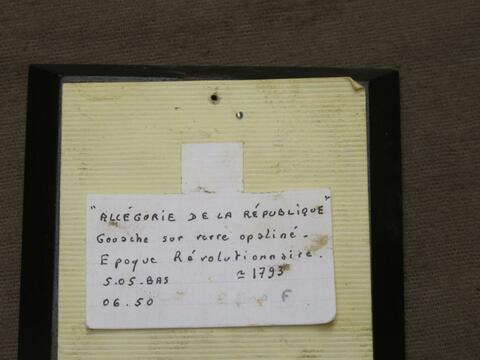 "ALLÉGORIE DE LA RÉPUBLIQUE"
Gouache sur verre opaliné.
Epoque Révolutionnaire.
S.OS.BAS ≃ 1793
06.50 F